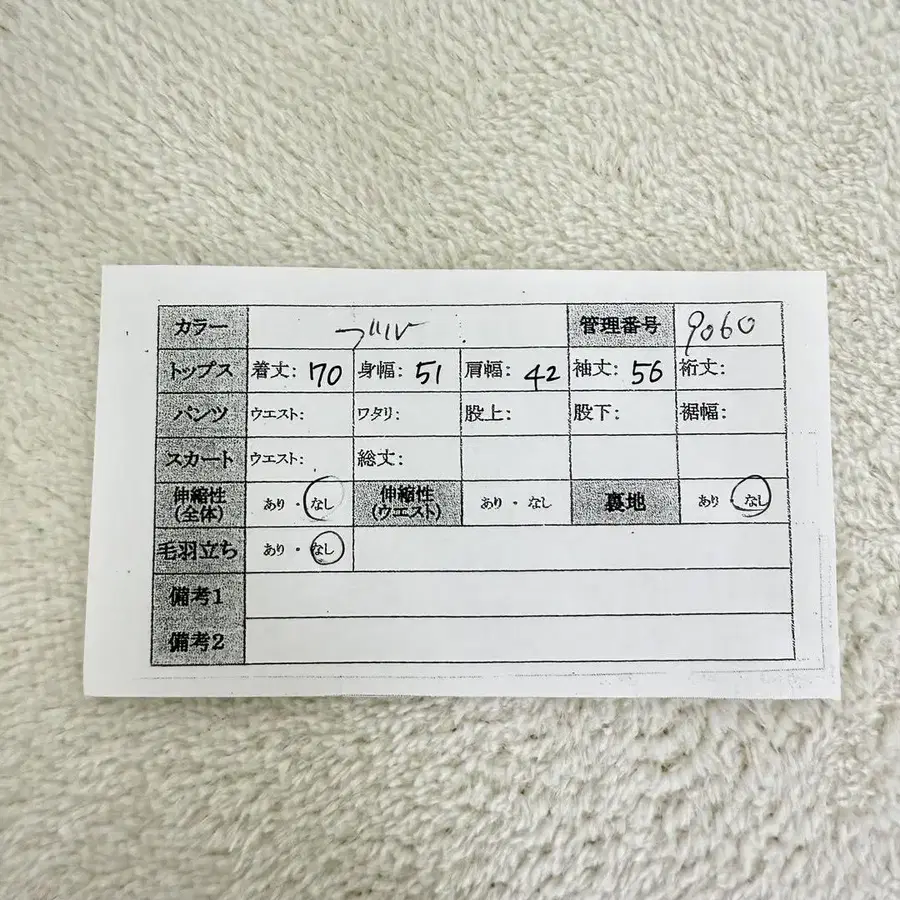 カラー 管理番号 9060
トップス 着丈: 70 身幅: 51 肩幅: 42 袖丈: 56 裄丈:
パンツ ウエスト: ワタリ: 股上: 股下: 裾幅:
スカート ウエスト: 総丈:
伸縮性(全体) あり・なし 伸縮性(ウエスト) あり・なし 裏地 あり・なし
毛羽立ち あり・なし
備考1
備考2